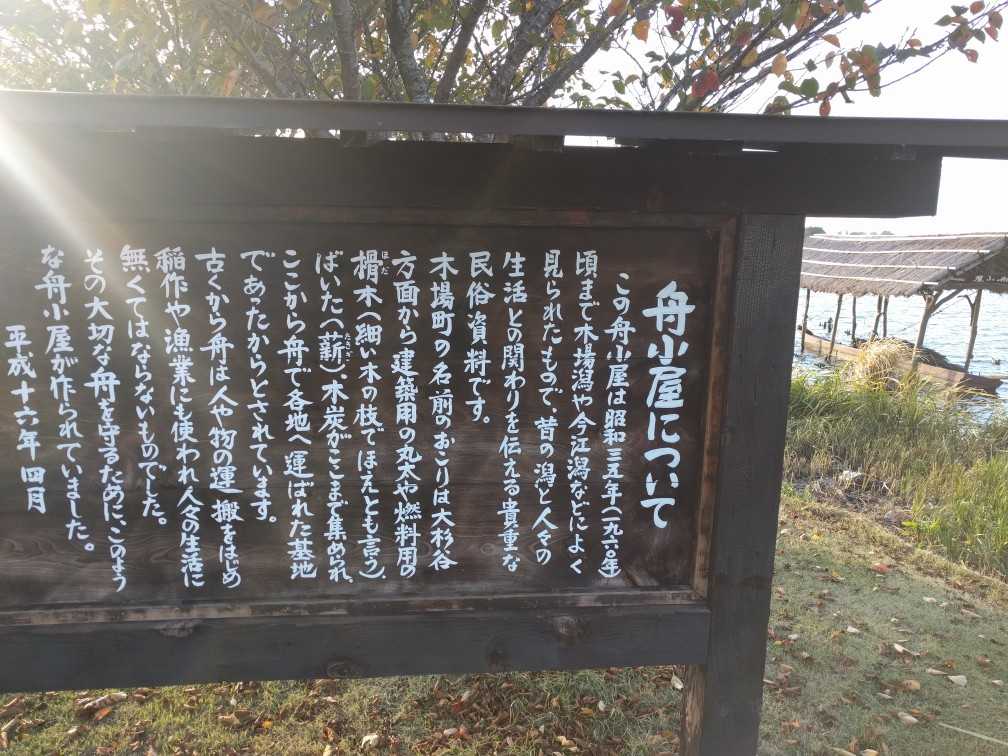 舟小屋について
この舟小屋は昭和三五年(一九六〇年)
頃まで木場潟や今江潟などによく
見られたもので、昔の潟と人々の
生活との関わりを伝える貴重な
民俗資料です。
木場町の名前のおこりは大杉谷
方面から建築用の丸太や燃料用の
榾木(細い木の枝でほえとも言う)、
ほだ
ばいた(薪)、木炭がここまで集められ、
たきぎ
ここから舟で各地へ運ばれた基地
であったからとされています。
古くから舟は人や物の運搬をはじめ
稲作や漁業にも使われ人々の生活に
無くてはならないものでした。
その大切な舟を守るために、このよう
な舟小屋が作られていました。
平成十六年四月